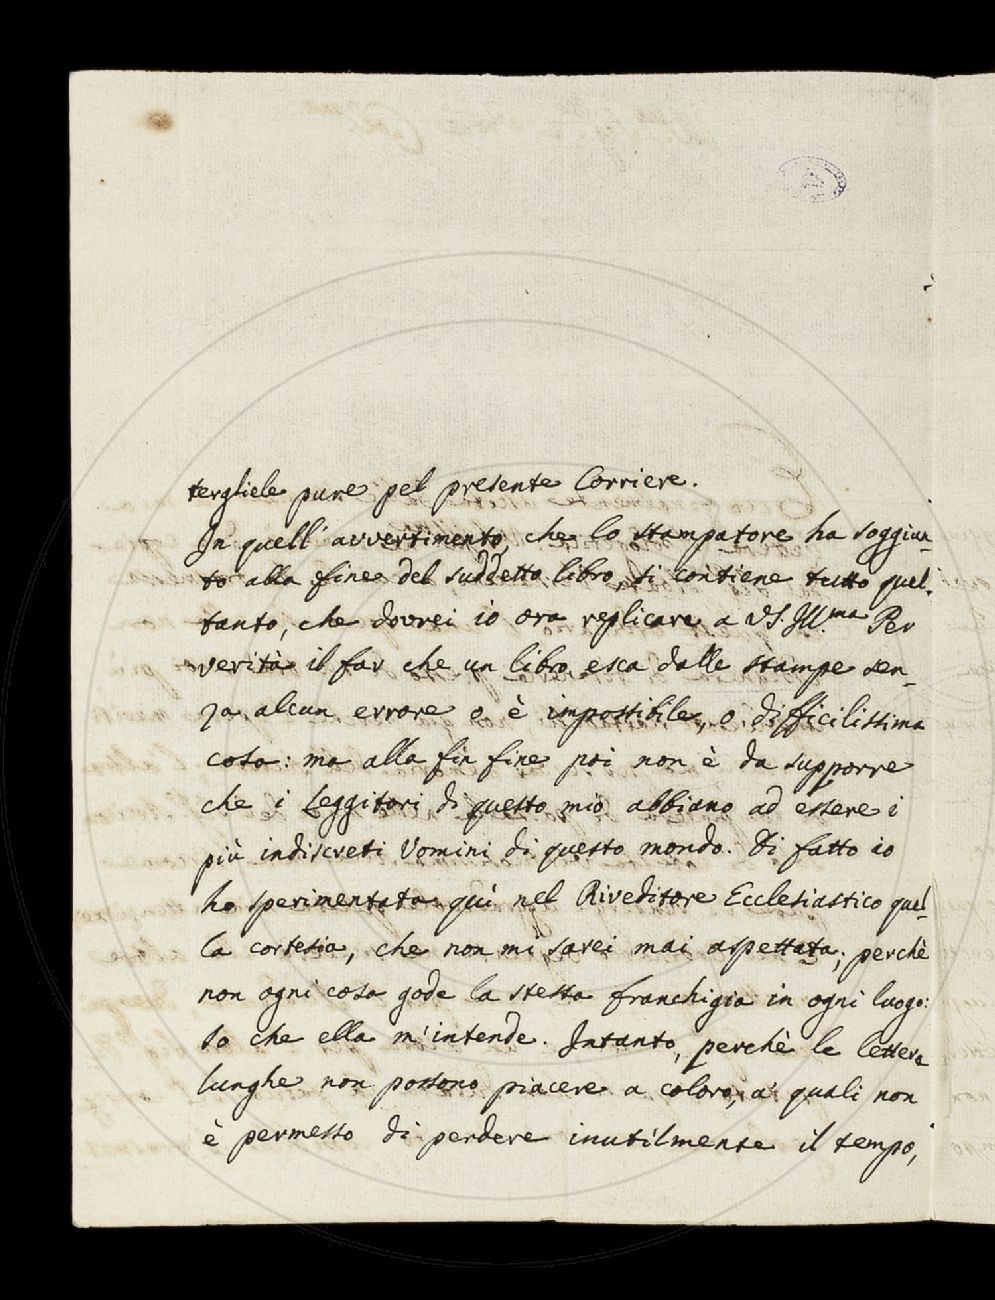 tergliele pure pel presente Corriere.
In quell' avvertimento, che lo stampatore ha soggiun-
to alla fine del suddetto libro, si contiene tutto quel-
tanto, che dovrei io ora replicare a VS. Ill.ma Per
verità il far che un libro esca dalle stampe sen-
za alcun errore o è impossibile, o difficilissima
cosa: ma alla fin fine poi non è da supporre
che i Leggitori di questo mio abbiano ad essere i
più indiscreti Uomini di questo mondo. Di fatto io
ho sperimentata quì nel Riveditore Ecclesiastico quel-
la cortesia, che non mi sarei mai aspettata; perchè
non ogni cosa gode la stessa franchigia in ogni luogo:
so che ella m'intende. Intanto, perchè le lettere
lunghe non possono piacere a coloro, a' quali non
è permesso di perdere inutilmente il tempo,